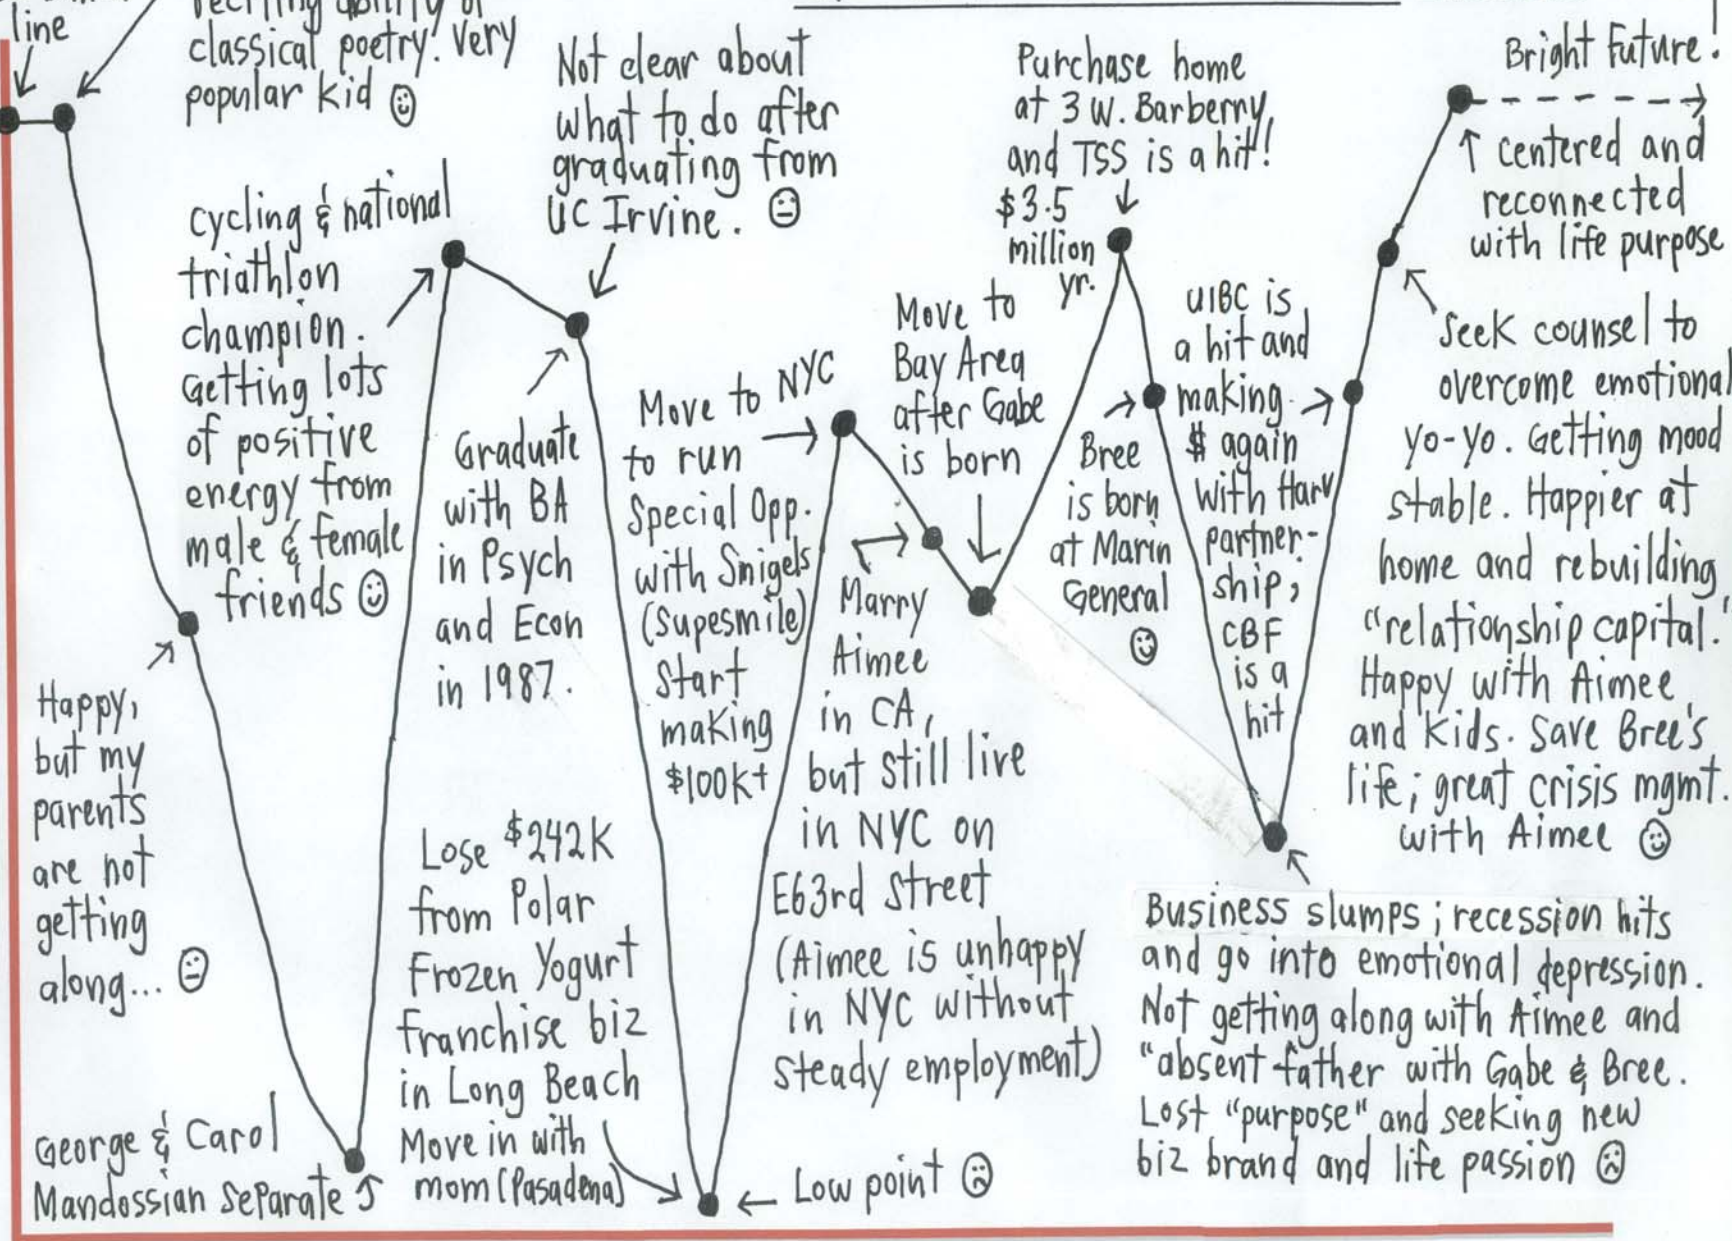 line
classical poetry! Very
popular kid
Happy,
but my
parents
are not
getting
along...
George & Carol
Mandossian separate
Cycling & national
triathlon
champion.
Getting lots
of positive
energy from
male & female
friends
Graduate
with BA
in Psych
and Econ
in 1987.
Not clear about
what to do after
graduating from
UC Irvine.
Lose $242K
from Polar
Frozen Yogurt
franchise biz
in Long Beach
Move in with
mom (Pasadena)
Low point
Move to NYC
to run
Special Opp.
with Snigels
(Supesmile)
Start
making
$100K+
Marry
Aimee
in CA,
but still live
in NYC on
E63rd Street
(Aimee is unhappy
in NYC without
steady employment)
Move to
Bay Area
after Gabe
is born
Purchase home
at 3 W. Barberry,
and TSS is a hit!
$3.5
million
yr.
Bree
is born
at Marin
General
UIBC is
a hit and
making
$ again
with Harv
partner-
ship,
CBF
is a
hit
Business slumps; recession hits
and go into emotional depression.
Not getting along with Aimee and
"absent father with Gabe & Bree.
Lost "purpose" and seeking new
biz brand and life passion
Seek counsel to
overcome emotional
yo-yo. Getting mood
stable. Happier at
home and rebuilding
"relationship capital."
Happy with Aimee
and kids. Save Bree's
life; great crisis mgmt.
with Aimee
Bright Future!
centered and
reconnected
with life purpose